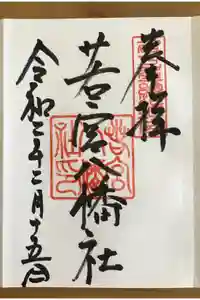 奉拝
若宮八幡社
令和三年三月十五日